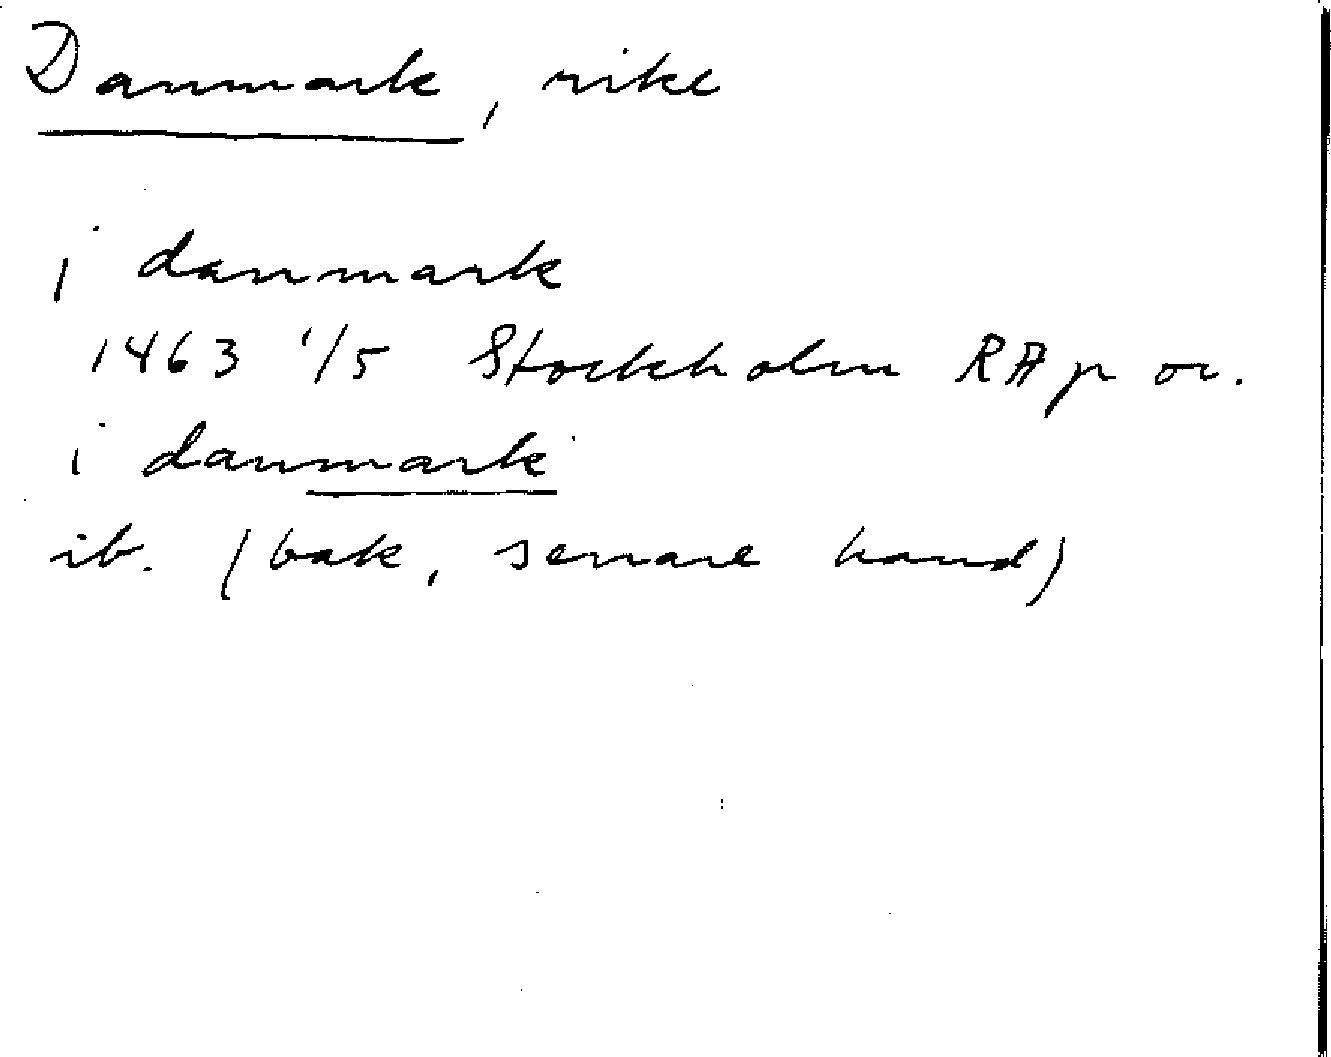 Danmark, rike
j danmark
1463 1/5 Stockholm RA p or.
i danmark
ib. (bak, senare hand)